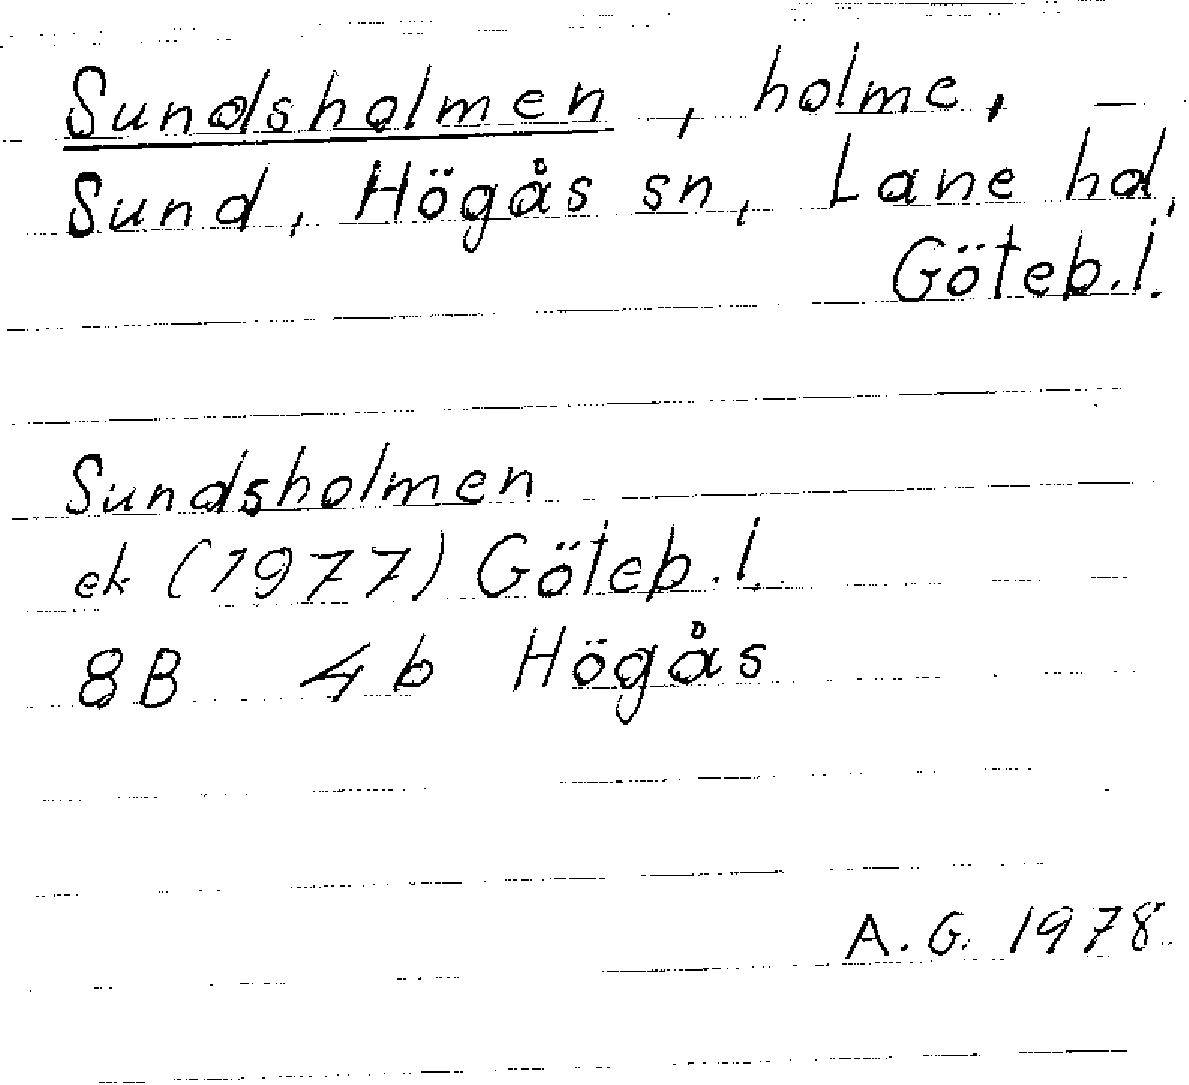 Sundsholmen, holme, —
Sund, Högås sn, Lane hd,
Göteb.l.
Sundsholmen
ek (1977) Göteb.l.
8B 4b Högås
A.G. 1978